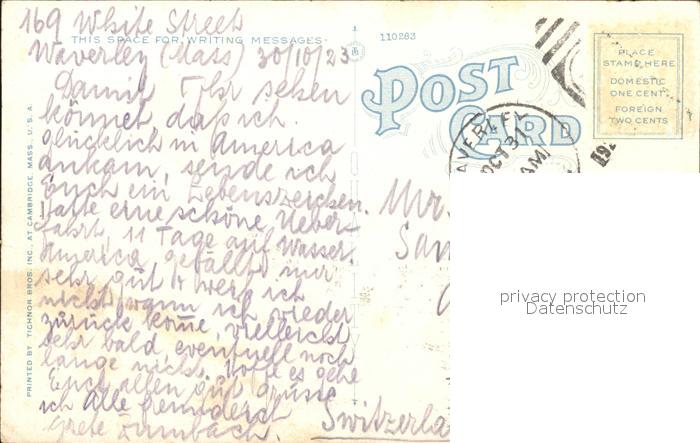 169 White Street
THIS SPACE FOR WRITING MESSAGES
Waverley (Mass) 30/10/23
Damit Ihr sehen
könnet, dass ich
glücklich in America
ankam, sende ich
Euch ein Lebenszeichen.
Hatte eine schöne Ueber-
fahrt, 11 Tage auf Wasser.
America gefällt mir
sehr gut & weiss ich
nicht, wann ich wieder
zurück kom̅e, vielleicht
sehr bald, eventuell noch
lange nicht. Hoffe es gehe
Euch allen gut grüsse
ich Alle freundlich
Grete Zumbach.
PRINTED BY TICHNOR BROS. INC., AT CAMBRIDGE, MASS., U. S. A.
110263
POST
CARD
PLACE
STAMP HERE
DOMESTIC
ONE CENT
FOREIGN
TWO CENTS
WAVERLEY
OCT 31
AM
192
Mr.
San
Switzerla
privacy protection
Datenschutz